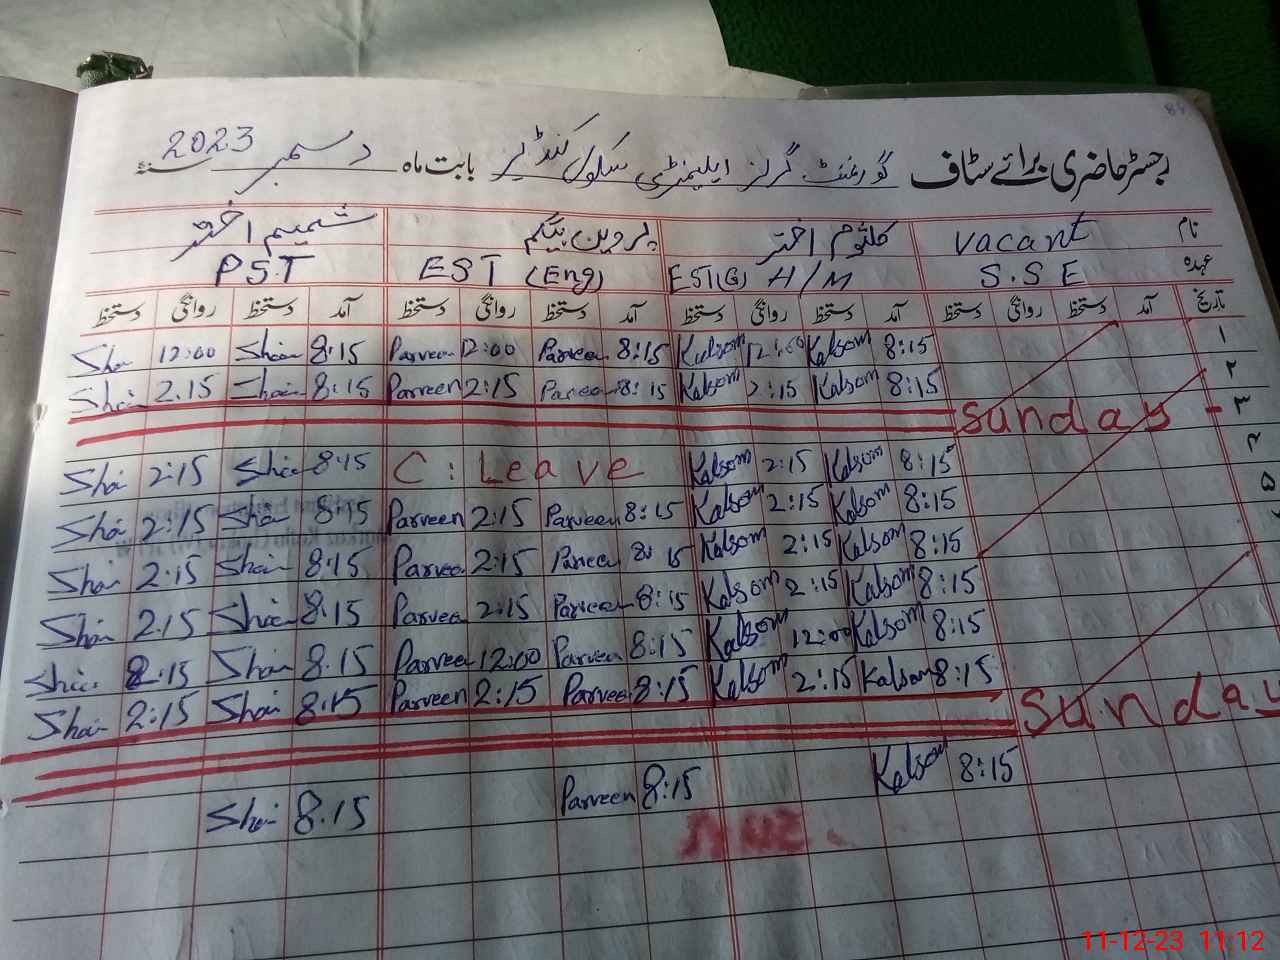 84
رجسٹر حاضری برائے سٹاف گورنمنٹ گرلز ایلیمنٹری سکول بابت ماہ دسمبر سنہ 2023
نام vacant کلثوم اختر پروین بیگم شمیم اختر
عہدہ S.S.E EST(G) H/M EST (Eng) P.S.T
تاریخ آمد دستخط روانگی دستخط آمد دستخط روانگی دستخط آمد دستخط روانگی دستخط آمد دستخط روانگی دستخط
۱ 8:15 Kalsom 12:00 Kalsom 8:15 Parveen 12:00 Parveen 8:15 Shai 12:00 Sha
۲ 8:15 Kalsom 2:15 Kalsom 8:15 Parveen 2:15 Parveen 8:15 Shai 2.15 Shai
۳ Sunday
۴ 8:15 Kalsom 2:15 Kalsom C: Leave 8:15 Shai 2:15 Shai
۵ 8:15 Kalsom 2:15 Kalsom 8:15 Parveen 2:15 Parveen 8:15 Shai 2:15 Shai
8:15 Kalsom 2:15 Kalsom 8:15 Parveen 2:15 Parveen 8:15 Shai 2:15 Shai
8:15 Kalsom 2:15 Kalsom 8:15 Parveen 2:15 Parveen 8:15 Shai 2.15 Shai
8:15 Kalsom 12:00 Kalsom 8:15 Parveen 12:00 Parveen 8.15 Shai 2:15 Shai
8:15 Kalsom 2:15 Kalsom 8:15 Parveen 2:15 Parveen 8:15 Shai 2:15 Shai
Sunday
8:15 Kalsom 8:15 Parveen 8.15 Shai
11-12-23 11:12